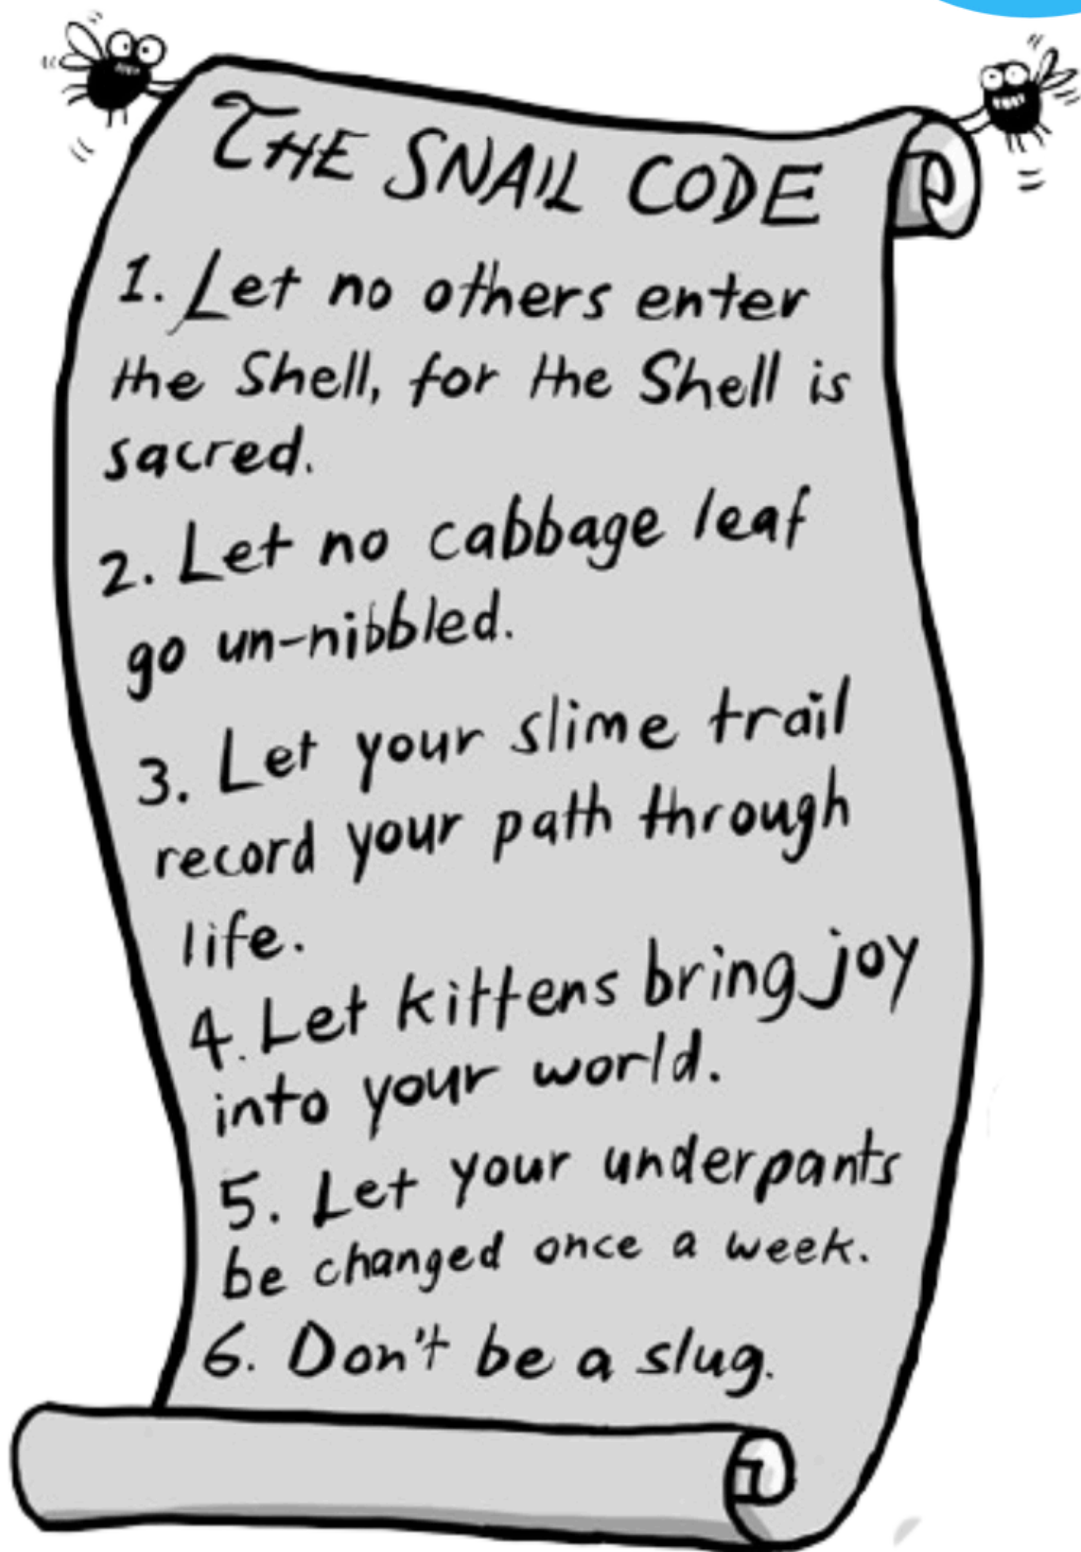 THE SNAIL CODE
1. Let no others enter
the Shell, for the Shell is
sacred.
2. Let no cabbage leaf
go un-nibbled.
3. Let your slime trail
record your path through
life.
4. Let kittens bring joy
into your world.
5. Let your underpants
be changed once a week.
6. Don't be a slug.